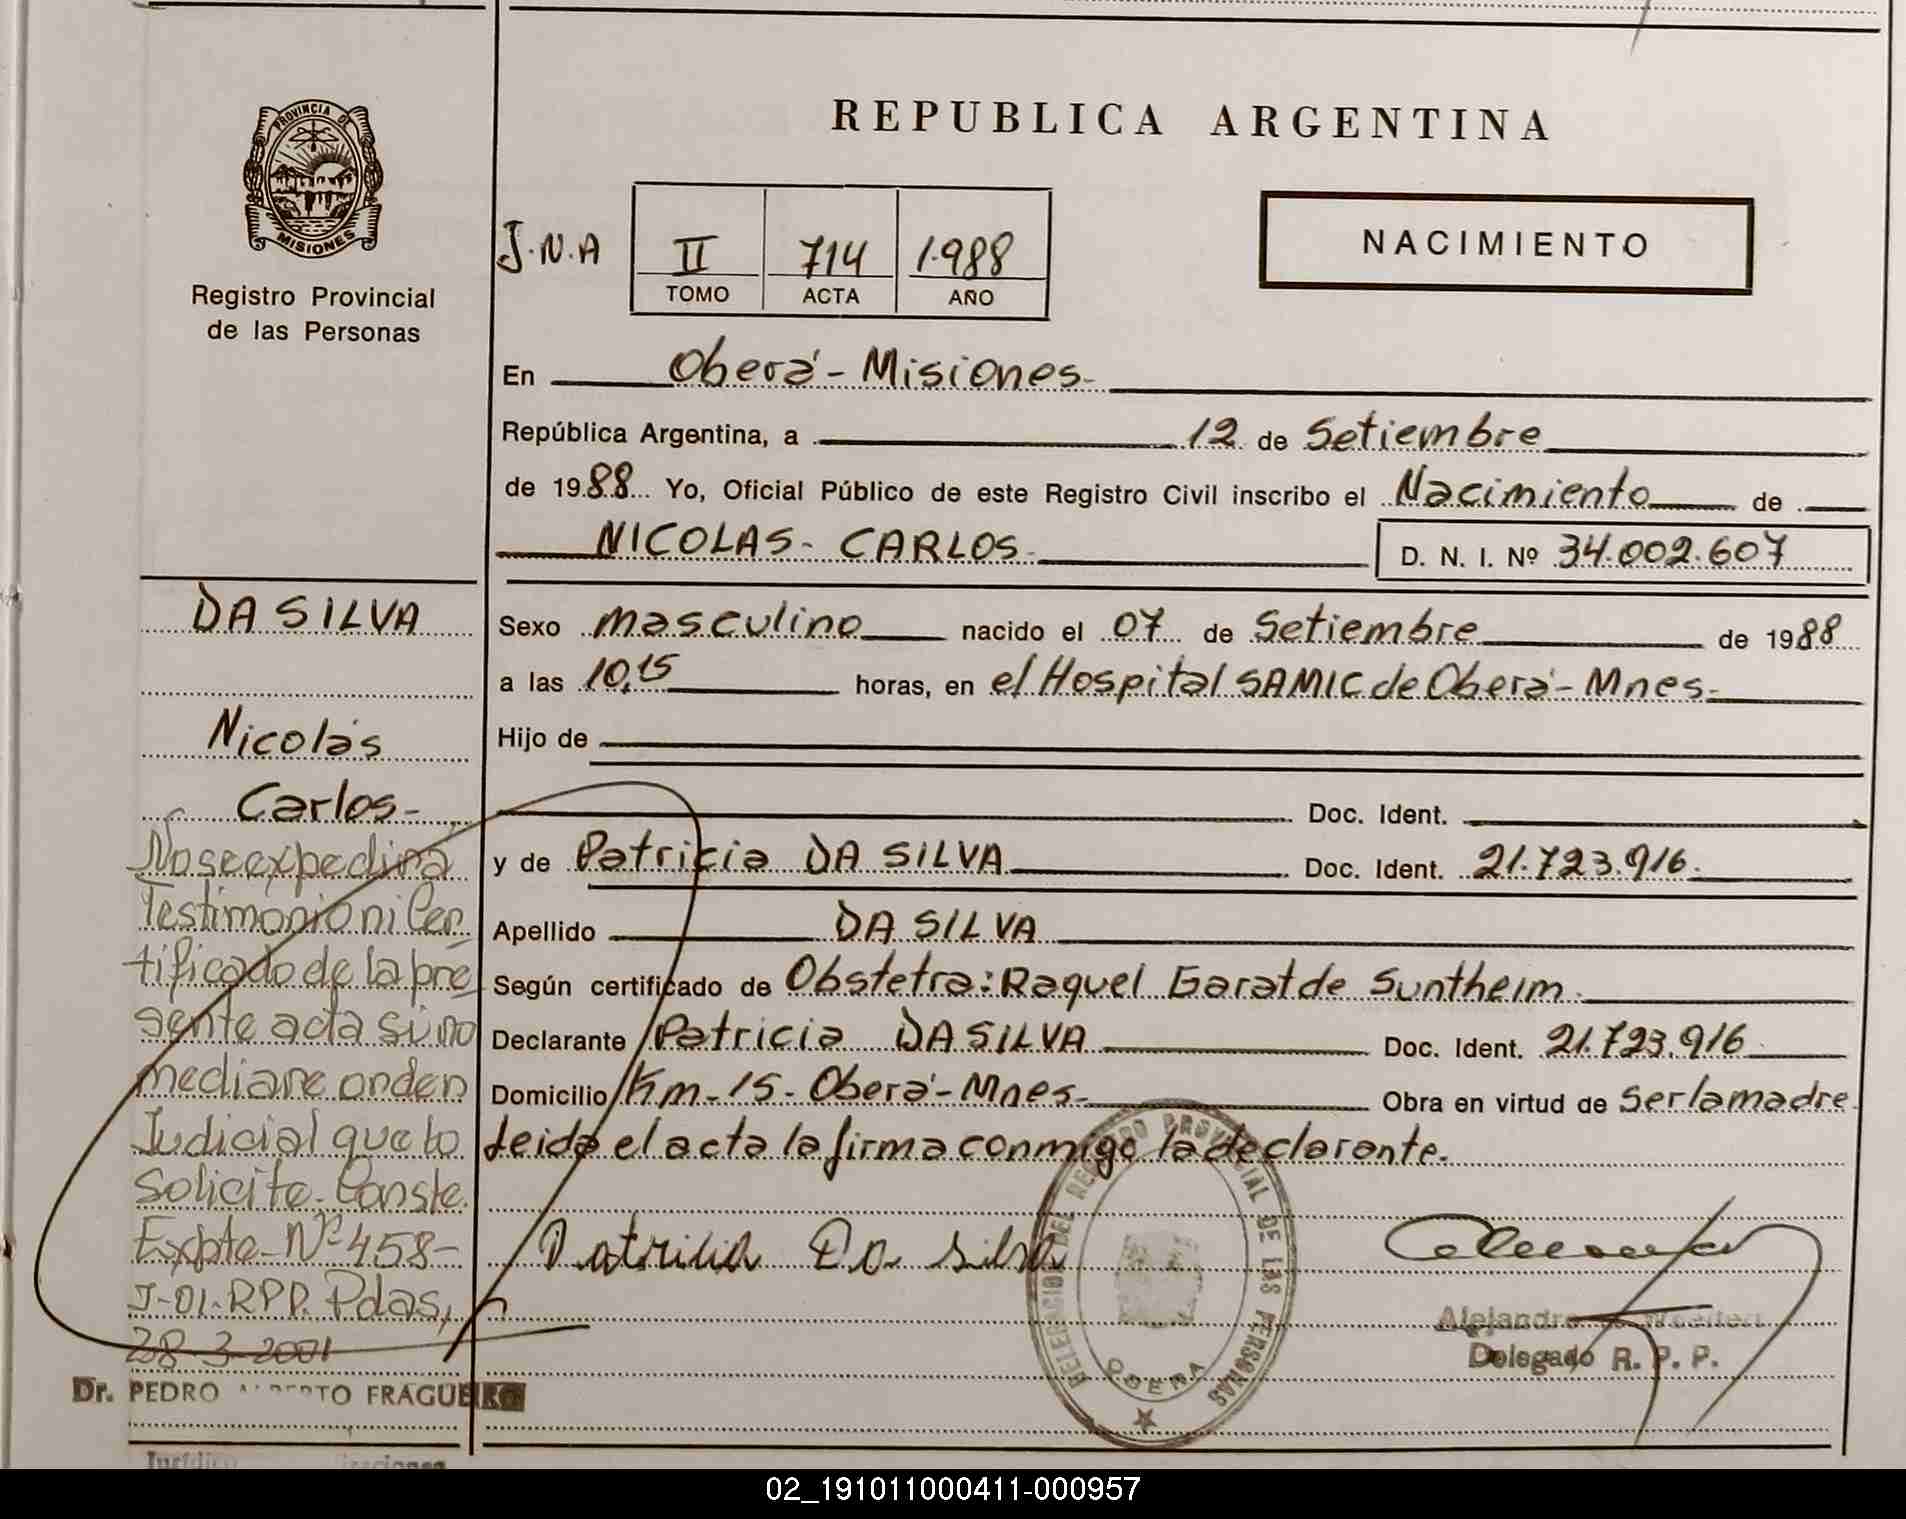 PROVINCIA DE
MISIONES
Registro Provincial
de las Personas
REPUBLICA ARGENTINA
NACIMIENTO
J.N.A
II 714 1.988
TOMO ACTA AÑO
En Oberá - Misiones
República Argentina, a 12 de Setiembre
de 1988 Yo, Oficial Público de este Registro Civil inscribo el Nacimiento de
NICOLAS - CARLOS
D. N. I. Nº 34.002.607
Sexo masculino nacido el 07 de Setiembre de 1988
a las 10,15 horas, en el Hospital SAMIC de Oberá - Mnes.
Hijo de
Doc. Ident.
y de Patricia DA SILVA Doc. Ident. 21.723.916.
Apellido DA SILVA
Según certificado de Obstetra: Raquel Garat de Suntheim.
Declarante Patricia DA SILVA Doc. Ident. 21.723.916
Domicilio Km - 15 - Oberá - Mnes. Obra en virtud de Ser la madre
Leida el acta la firma conmigo la declarante.
Patricia Da Silva
DELEGACION DEL REGISTRO PROVINCIAL DE LAS PERSONAS
OBERA
Alejandro
Delegado R. P. P.
DA SILVA
Nicolás
Carlos -
No se expedirá
Testimonio ni Cer
tificado de la pre
sente acta si no
mediare orden
Judicial que lo
Solicite. Conste.
Expte - Nº 458 -
J-01. RPP. Pdas,
28-3-2001
Dr. PEDRO ALBERTO FRAGUEIRO
02_191011000411-000957